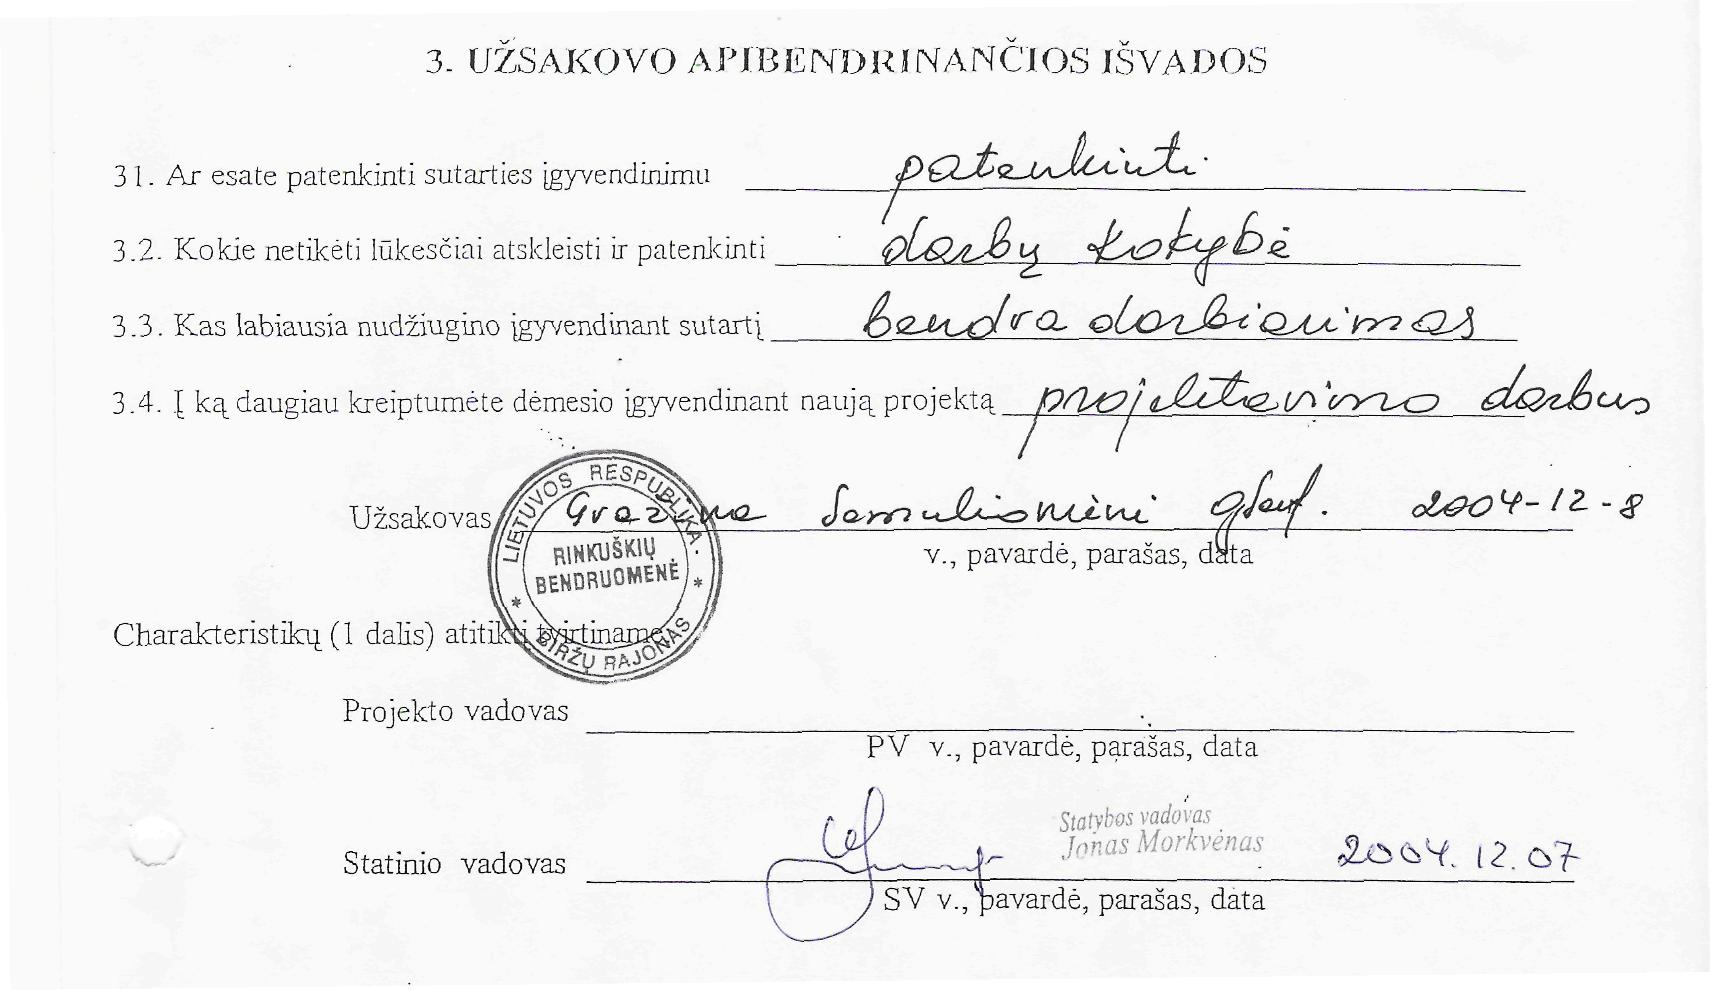 3. UŽSAKOVO APIBENDRINANČIOS IŠVADOS
31. Ar esate patenkinti sutarties įgyvendinimu patenkinti
3.2. Kokie netikėti lūkesčiai atskleisti ir patenkinti darbų kokybė
3.3. Kas labiausia nudžiugino įgyvendinant sutartį bendra darbiavimas
3.4. Į ką daugiau kreiptumėte dėmesio įgyvendinant naują projektą projektavimo darbus
LIETUVOS RESPUBLIKA.
Užsakovas Gražina 2004-12-8
v., pavardė, parašas, data
RINKUŠKIŲ
BENDRUOMENĖ
* BIRŽŲ RAJONAS *
Charakteristikų (1 dalis) atitiktį tvirtiname
Projekto vadovas
PV v., pavardė, parašas, data
Statybos vadovas
Jonas Morkvėnas
Statinio vadovas 2004.12.07
SV v., pavardė, parašas, data